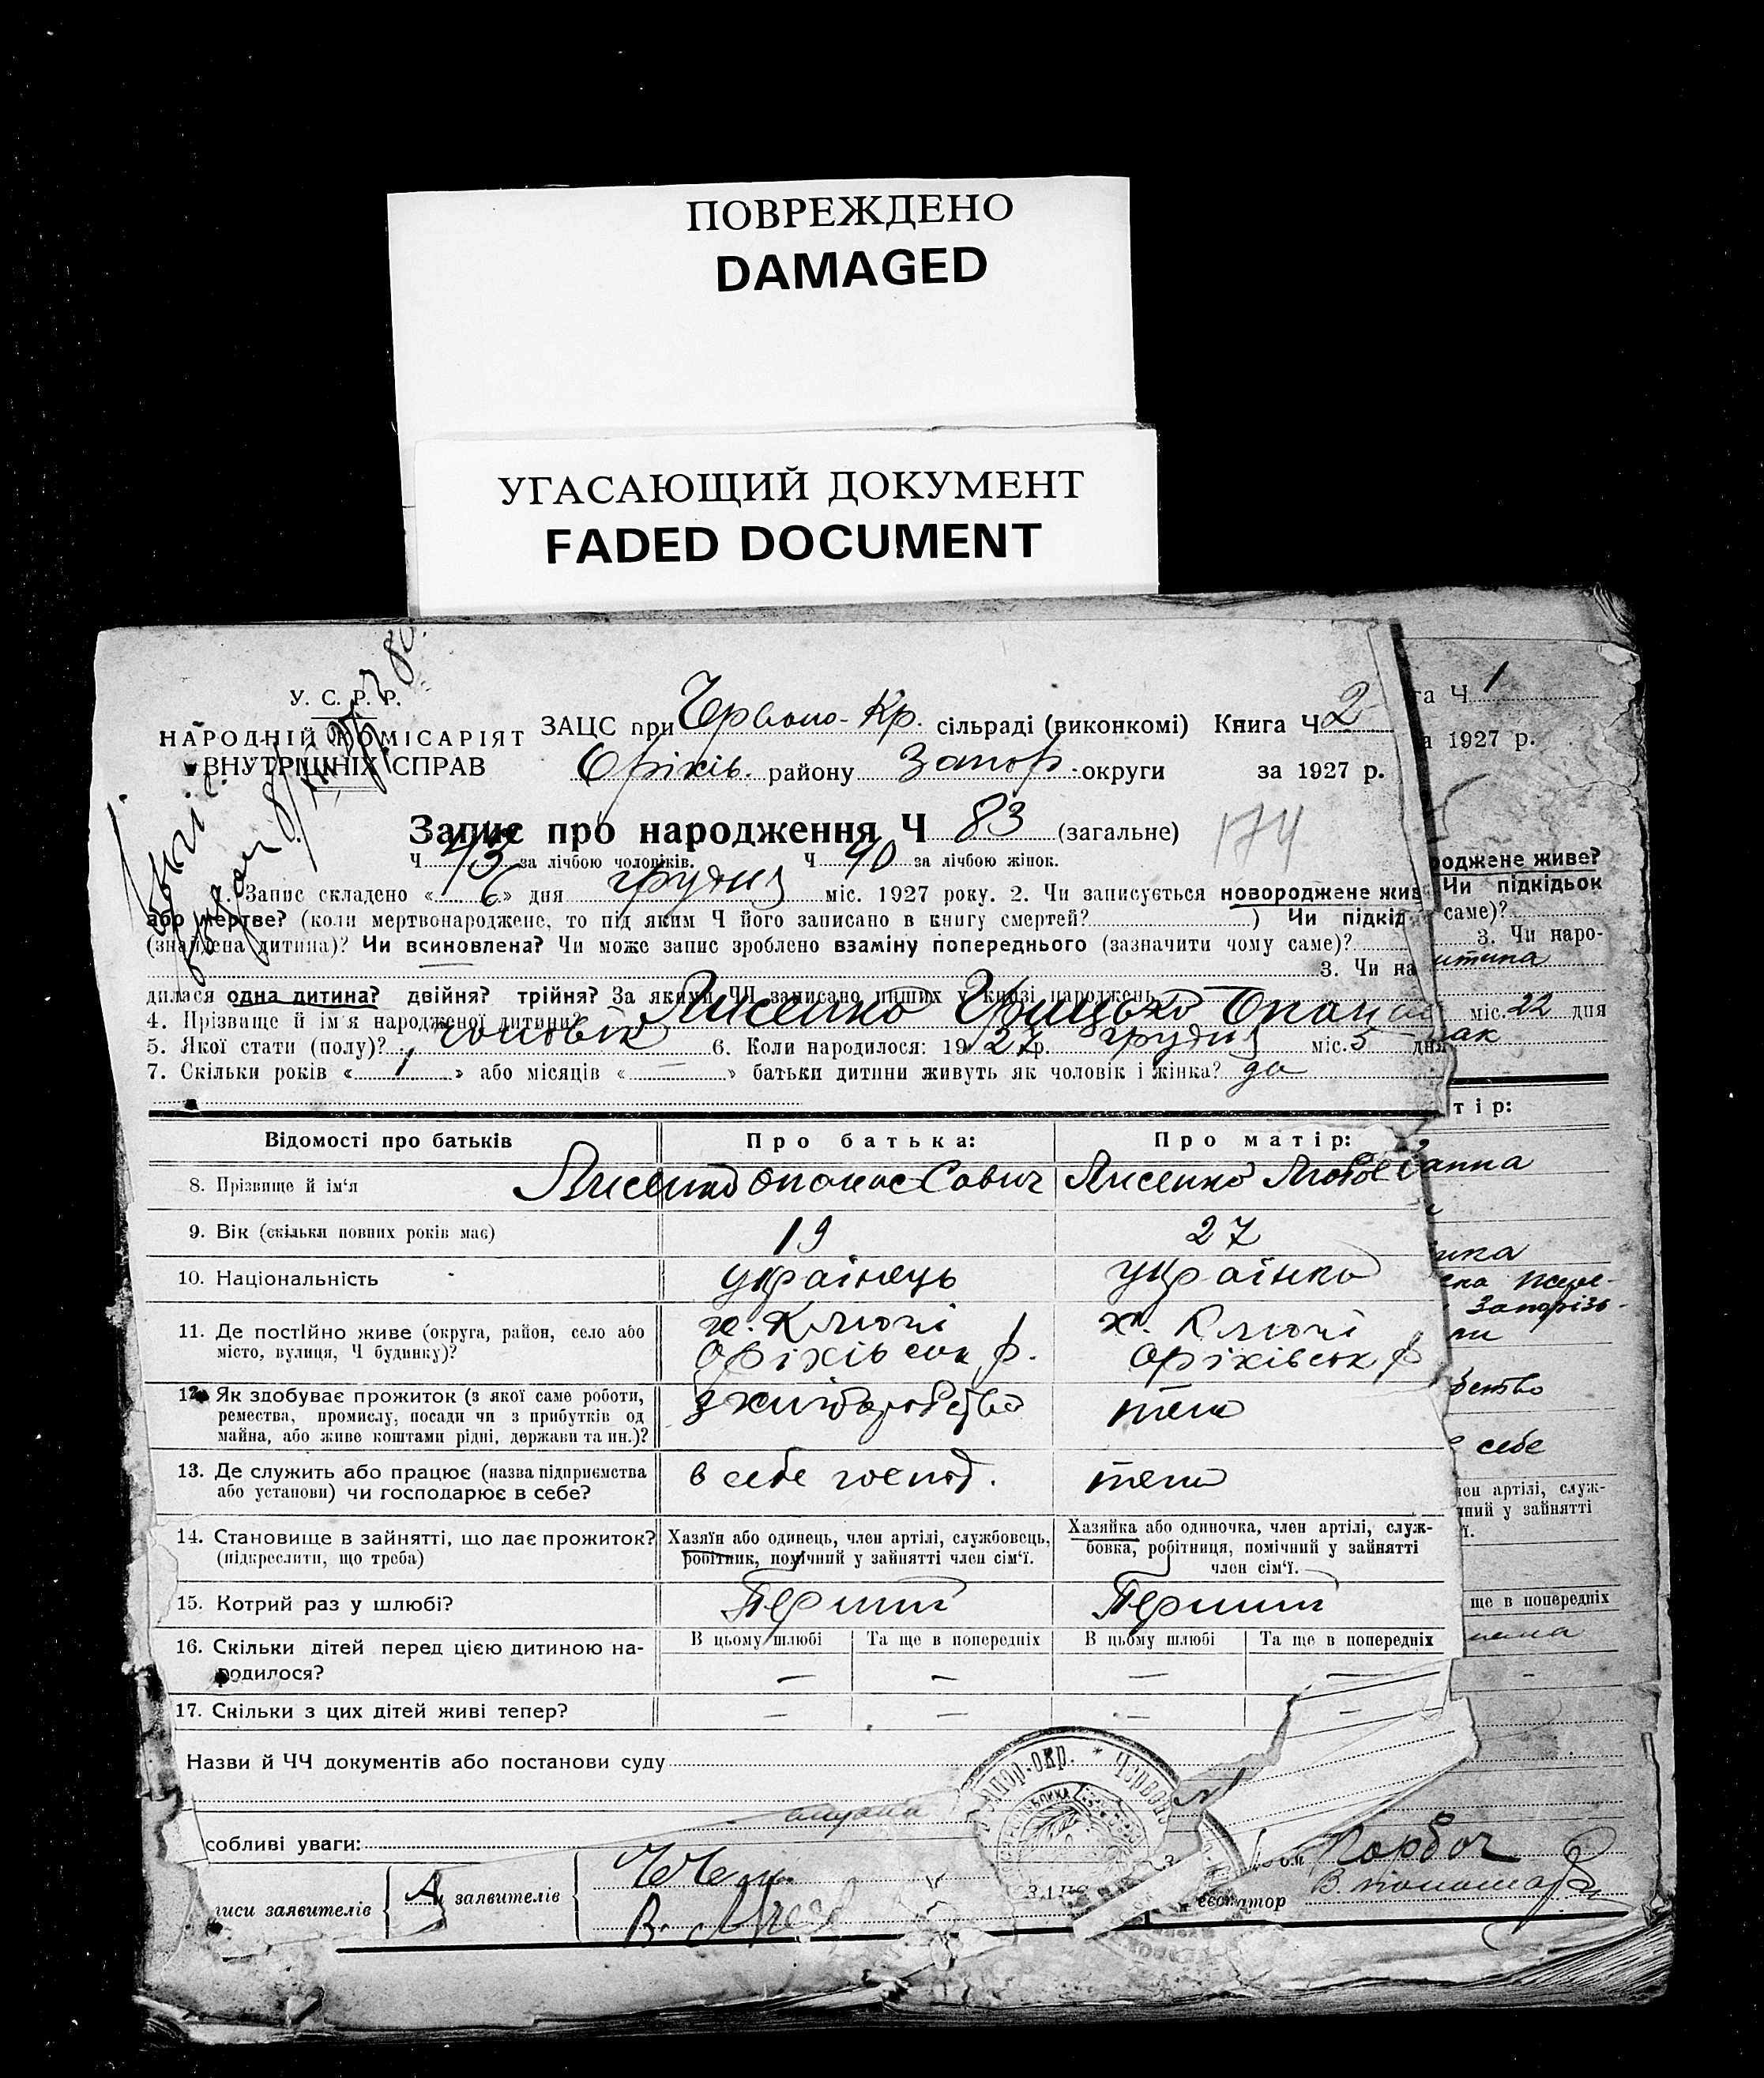 ПОВРЕЖДЕНО
DAMAGED
УГАСАЮЩИЙ ДОКУМЕНТ
FADED DOCUMENT
У. С. Р. Р.
НАРОДНІЙ КОМІСАРІЯТ
ВНУТРІШНІХ СПРАВ
ЗАЦС при Червоно-Кр. сільраді (виконкомі) Книга Ч 2
Оріхів. району Запор. округи за 1927 р.
Запис про народження Ч 83 (загальне)
174
Ч 43 за лічбою чоловіків. Ч 40 за лічбою жінок.
1. Запис складено «6» дня грудня міс. 1927 року. 2. Чи записується новороджене жив
або мертве? (коли мертвонароджене, то під яким Ч його записано в книгу смертей? ) Чи підкід
(знайдена дитина)? Чи всиновлена? Чи може запис зроблено взаміну попереднього (зазначити чому саме)?
3. Чи на
дилася одна дитина? двійня? трійня? За якими ЧЧ записано инших у книзі народжень
4. Прізвище й ім'я народженої дитини? Лисенко Грицько Опанас
5. Якої стати (полу)? чоловік 6. Коли народилося: 1927 р. грудня міс. 5 дня
7. Скільки років «1» або місяців «—» батьки дитини живуть як чоловік і жінка? да
Відомості про батьків Про батька: Про матір:
8. Прізвище й ім'я Лисенко Опанас Савич Лисенко Любов
9. Вік (скільки повних років має) 19 27
10. Національність українець українка
11. Де постійно живе (округа, район, село або х. Ключі х. Ключі
місто, вулиця, Ч будинку)? Оріхівськ р. Оріхівськ р
12. Як здобуває прожиток (з якої саме роботи, з хліборобства теж
ремества, промислу, посади чи з прибутків од
майна, або живе коштами рідні, держави та ин.)?
13. Де служить або працює (назва підприємства в себе господ. теж
або установи) чи господарює в себе?
14. Становище в зайнятті, що дає прожиток? Хазяїн або одинець, член артілі, службовець, Хазяйка або одиночка, член артілі, служ-
(підкреслити, що треба) робітник, помічний у зайнятті член сім'ї. бовка, робітниця, помічний у зайнятті
член сім'ї.
15. Котрий раз у шлюбі? Перший Перший
16. Скільки дітей перед цією дитиною на- В цьому шлюбі Та ще в попередніх В цьому шлюбі Та ще в попередніх
родилося? — — — —
17. Скільки з цих дітей живі тепер? — — — —
Назви й ЧЧ документів або постанови суду
собливі уваги:
писи заявителів заявителів
Запор-окр. * Червоно
га Ч 1
а 1927 р.
роджене живе?
Чи підкідьок
саме)?
3. Чи наро-
міс. 22 дня
тір:
Ганна
Запорізь-
себе
лен артілі, служ-
чний у зайнятті
ї.
ще в попередніх
нема